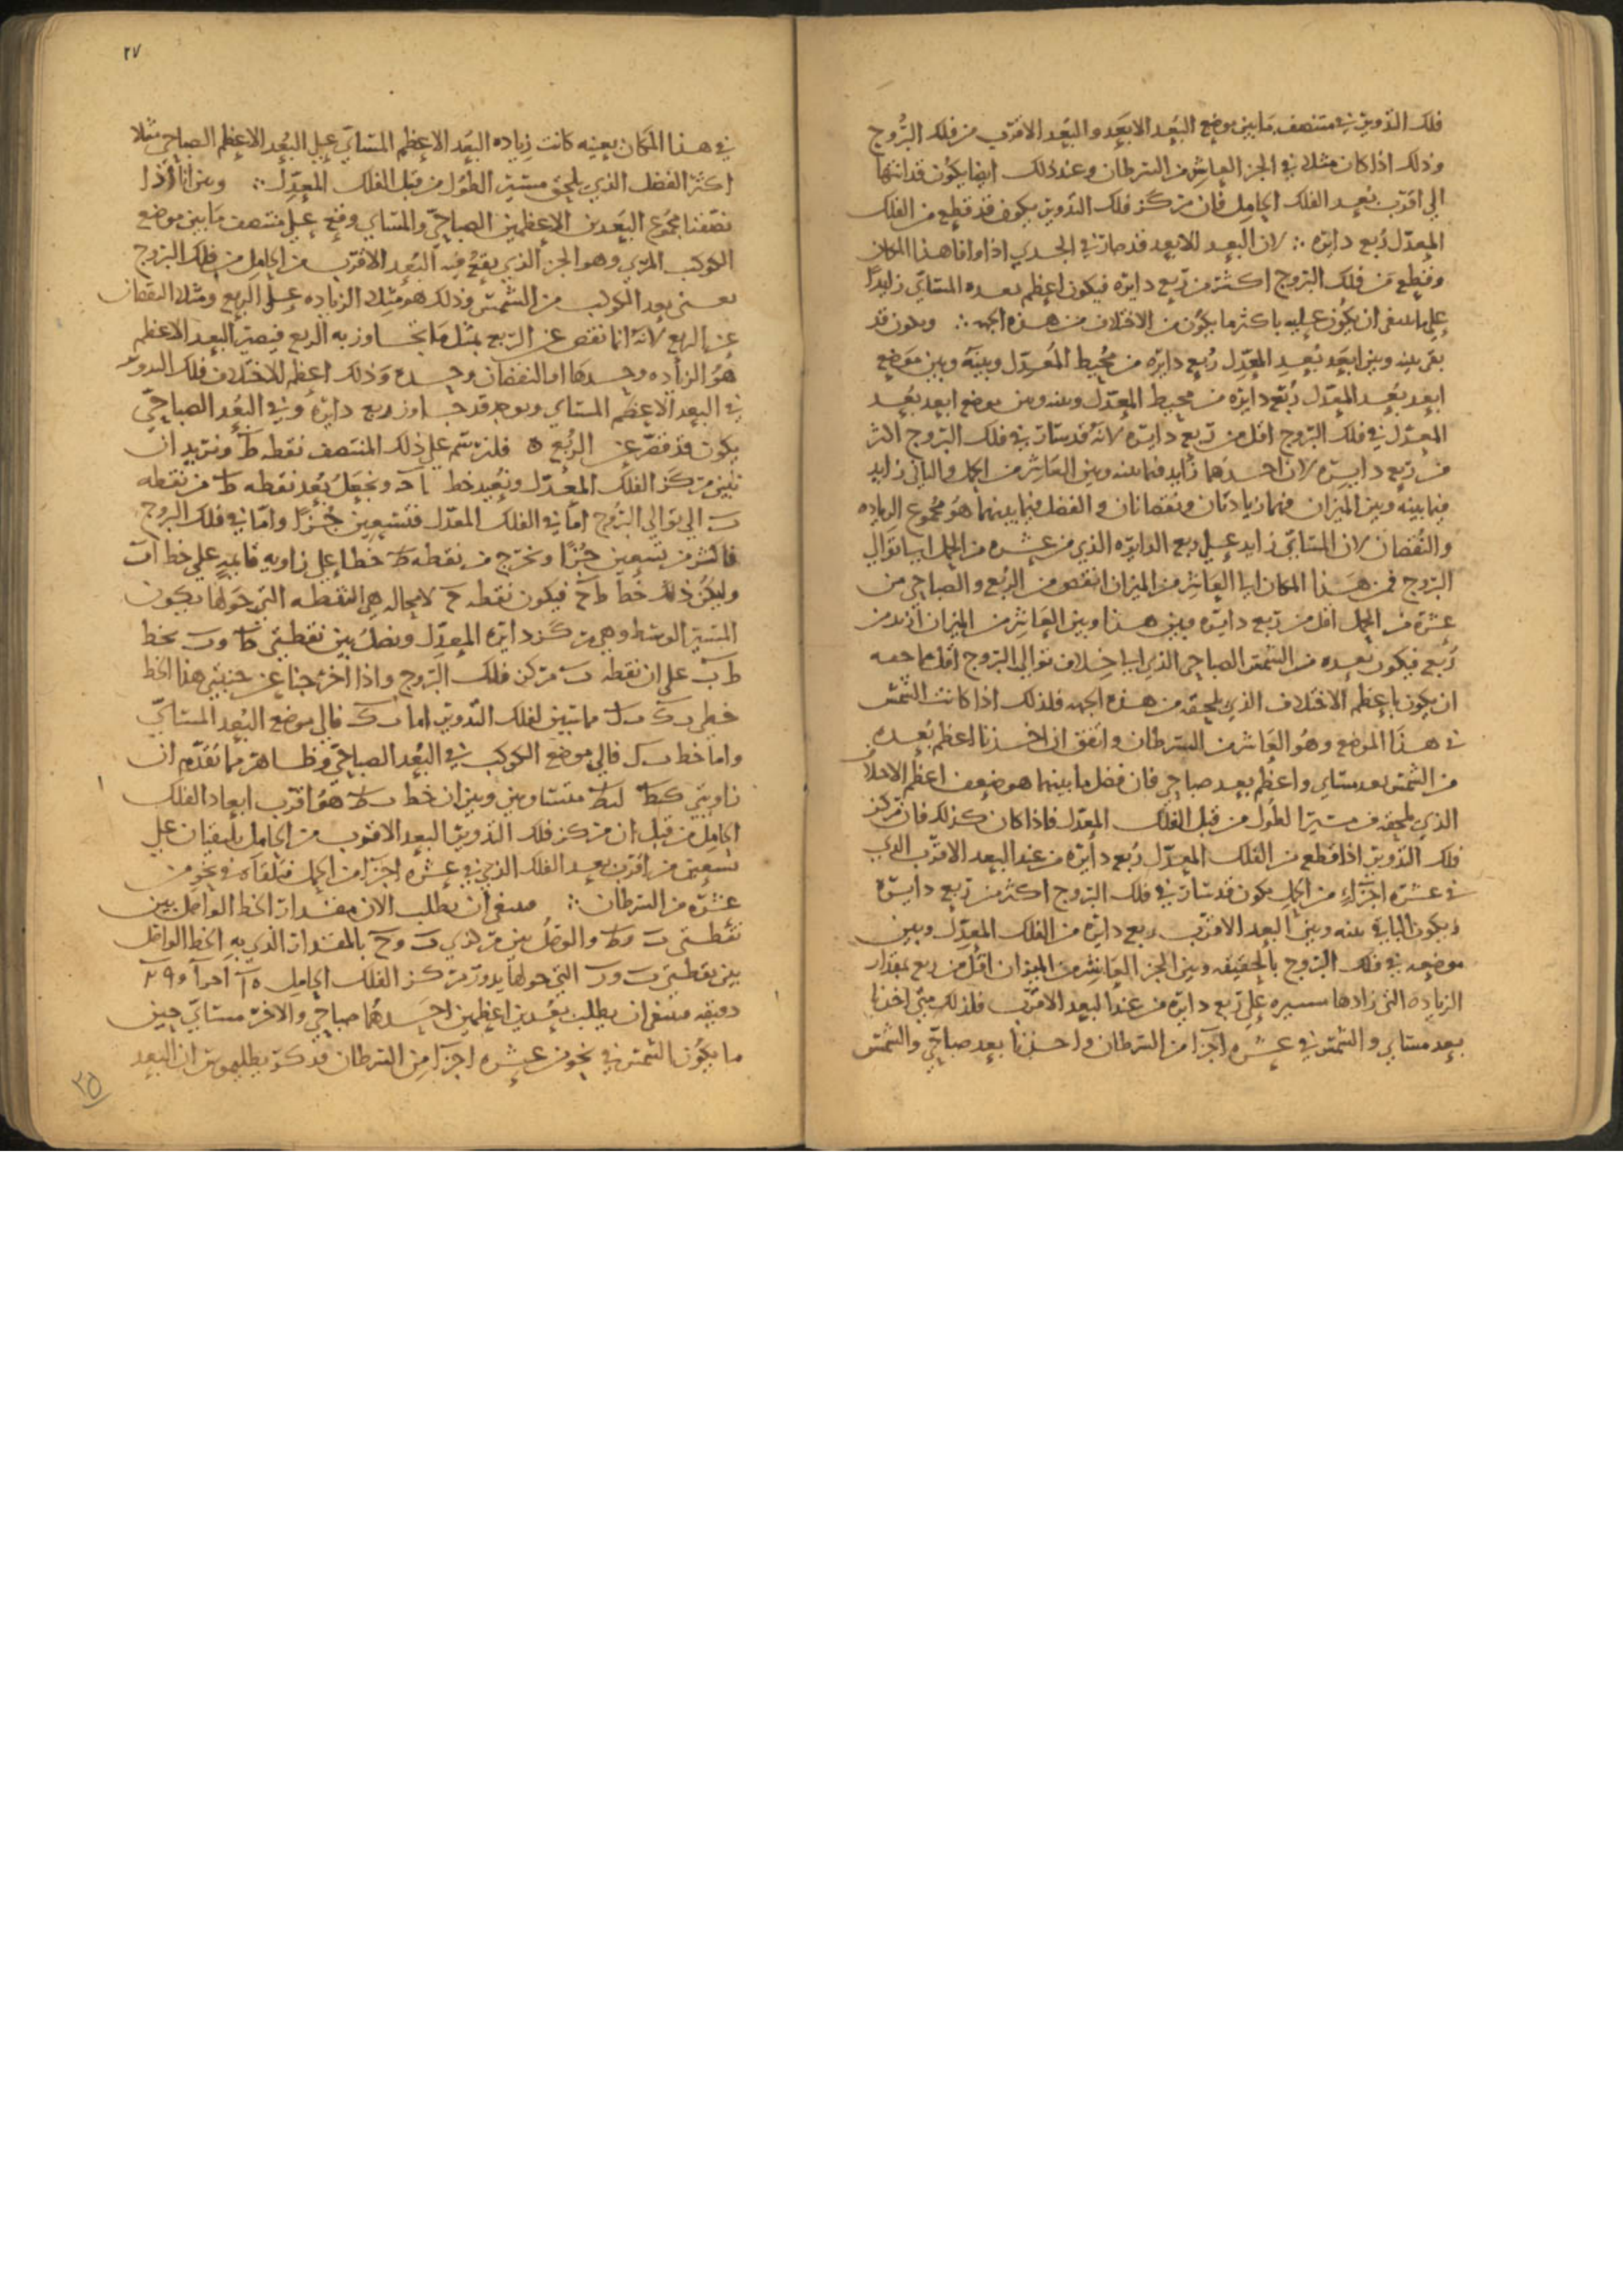 فلك التدوير في منتصف ما بين موضع البُعد الابعَد والبُعد الاقرب من فلك البُروج
وذلك اذا كان مثلا في الجز العاشر من السرطان وعند ذلك ايضا يكون قد انتها
الي اقرب بُعد الفلك الحامل فان مركز فلك التدوير يكون قد قطع من الفلك
المعدّل رُبع دايره ∴ لان البعد الابعد قد صار في الجدي اذا وافا هذا المكان
وقطع من فلك البروج اكثر من رُبع دايره فيكون اعظم بعده المسايّ زايدًا
علي ما ينبغي ان يكون عليه باكثر ما يكون من الاختلاف من هذه الجهه ∴ ويكون قد
بقي بينه وبين ابعَد بُعد المعدّل رُبع دايره من محيط المُعدّل وبينَه وبين موضع
ابعد بعُد المعدّل رُبع دايره من محيط المعدّل وبينه وبين موضع ابعد بُعد
المعدّل في فلك البروج اقل من رُبع دايره لانه قد سار في فلك البروج اكثر
من رُبع دايره لان احدهما زايد فيما بينه وبين العاشر من الحمل والثاني زايد
فيما بينه وبين الميزان فهما زيادتان ونقصانان والفضل فيما بينهما هو مجموع الزياده
والنُقصان لان المسايّ زايد علي ربع الدايره الذي من عشره من الحمل الي توالي
البروج فمن هذا المكان الي العاشر من الميزان انقص من الرُبع والصباحي من
عشرة من الحمل اقل من ربع دايره وبين هذا وبين العاشر من الميزان ازيد من
رُبع فيكون بُعده من الشمس الصباحي الذي الي خلاف توالي البروج اقل مما حقه
ان يكون باعظم الاختلاف الذي يلحقه من هذه الجهه فلذلك اذا كانت الشمس
في هذا الموضع وهُو العاشر من السرطان واتفق ان اخذنا اعظم بُعده
من الشمس بعد مسايّ واعظُم بعد صباحي فان فضل ما بينهما هو ضعف اعظم الاختلاف
الذي يلحقه في مسير الطول من قبل الفلك المعدّل فاذا كان كذلك فان مركز
فلك التدوير اذا قطع من الفلك المعدّل رُبع دايره من عند البعد الاقرب الذي
في عشرة اجزاء من الحمل يكون قد سار في فلك البروج اكثر من ربع دايرة
ويكون الباقي بينه وبين البعد الاقرب ربع دايره من الفلك المعدّل وبين
موضعه في فلك البروج بالحقيقه وبين الجز العاشر من الميزان اقل من ربع بمقدار
الزيادة التي زادها مسيره علي ربع دايره من عند البعد الاقرب فلذلك متي اخذنا
بعد مسايّ والشمس في عشره اجزا من السرطان واخذنا بعد صباحيّ والشمس
٢٧
في هذا المكان بعينه كانت زياده البعد الاعظم المسايّ علي البُعد الاعظم الصباحي مثلا
اكثر الفضل الذي يلحق مسير الطول من قبل الفلك المعدّل ∴ وبين انا اذا
نصّفنا مجموع البَعدين الاعظمين الصباحيّ والمساي وقع علي منتصف ما بين موضع
الكوكب المري وهو الجز الذي يقع فيه البُعد الاقرب من الحامل من فلك البروج
يعني بعد الكوكب من الشمس وذلك هو مثل الزياده علي الربع ومثلا النقصان
عن الربع لانه انما نقص عن الربع بمثل ما تجاوز به الربع فيصير البعد الاعظم
هُو الزياده وحدها او النقصان وحده وذلك اعظم للاختلاف فلك التدوير
في البعد الاعظم المساي ويوجد قد جاوز ربع دايرة وفي البُعد الصباحيّ
يكون قد قصّر عن الرُبع ه فلنرسم علي ذلك المنتصف نقطه ط ونريد ان
نبين مركز الفلك المعدّل ونُعيد خط ا ح ونجعل بُعد نقطه ط من نقطه
ب الي توالي البروج امّا في الفلك المعدّل فتسعين جُزًا وامّا في فلك البروج
فاكثر من تسعين جُزًا ونخرج من نقطه ط خطا علي زاويه قايمه علي خط اب
وليكن ذلك خط ط ح فيكون نقطه ح لا محاله هي النقطه التي حولها يكون
المسير الوسط وهي مركز دايره المعدّل ونصلُ بين نقطتي ط وب بخط
ط ب علي ان نقطه ب مركز فلك البروج واذا اخرجنا عن جنبتي هذا الخط
خطي ب ك ب ل مماسين لفلك التدوير اما ب ك فالي موضع البُعد المسايّ
واما خط ب ل فالي موضع الكوكب في البُعد الصباحيّ وظاهر مما تقدّم ان
زاويتي كبط لبط متساويتين وبين ان خط ب ط هُو اقرب ابعاد الفلك
الحامل من قبل ان مركز فلك التدوير البعد الاقرب من الحامل يلتقيان علي
تسعين من اقرب بعد الفلك الذي في عشره اجزا من الحمل فيلقاه في نحو من
عشرة من السرطان ∴ فينبغي ان يطلب الان مقدار الخط الواصل بين
نقطتي ب وط والوصل بين مركزي ب وح بالمقدار الذي به الخط الواصل
بين نقطتي ب ور التي حولها يدور مركز الفلك الحامل
دقيقه فينبغي ان يطلب بعُدين اعظمين احدهُما صباحي والاخر مسايّ حين
ما يكون الشمس في نحو من عشره اجزا من السرطان فذكر بطلميوس ان البعد
٢٥